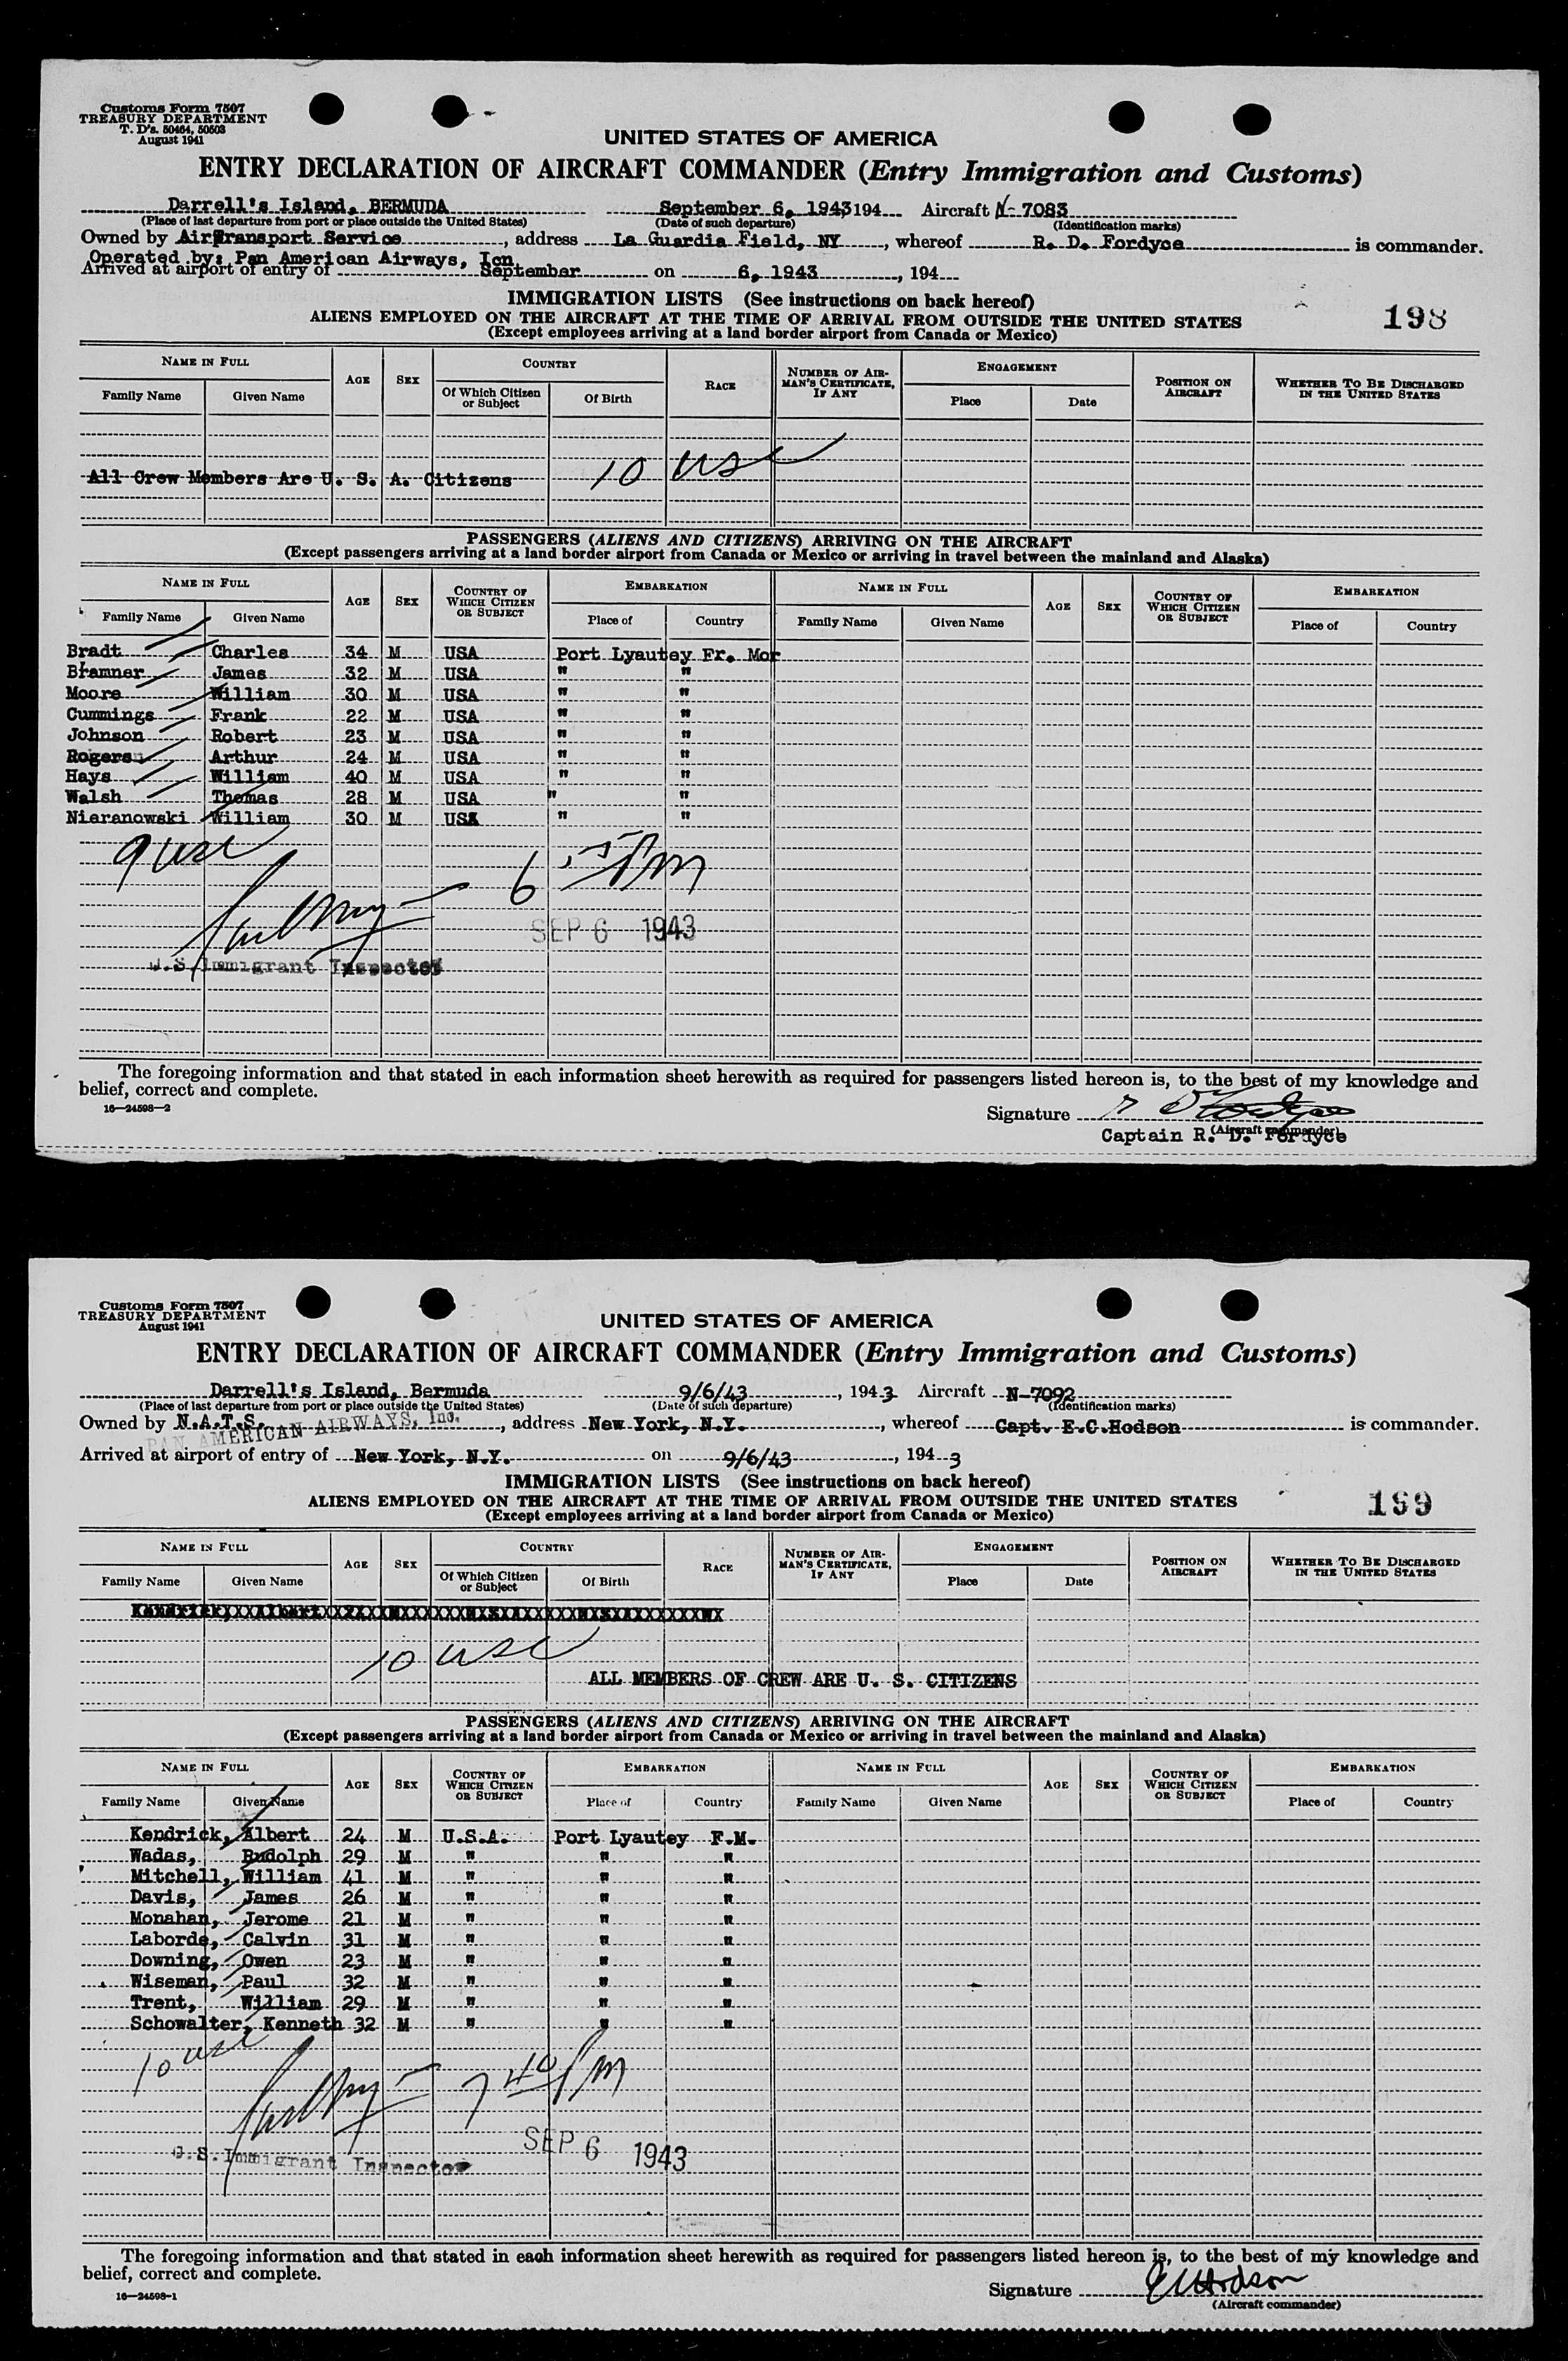 Customs Form 7507
TREASURY DEPARTMENT
T. D's. 50464, 50503
August 1941
UNITED STATES OF AMERICA
ENTRY DECLARATION OF AIRCRAFT COMMANDER (Entry Immigration and Customs)
Darrell's Island, BERMUDA September 6, 1943 194 Aircraft N-7083
(Place of last departure from port or place outside the United States) (Date of such departure) (Identification marks)
Owned by Air Transport Service, address La Guardia Field, NY, whereof R. D. Fordyce is commander.
Operated by: Pan American Airways, Icn
Arrived at airport of entry of September on 6, 1943, 194
IMMIGRATION LISTS (See instructions on back hereof)
198
ALIENS EMPLOYED ON THE AIRCRAFT AT THE TIME OF ARRIVAL FROM OUTSIDE THE UNITED STATES
(Except employees arriving at a land border airport from Canada or Mexico)
NAME IN FULL AGE SEX COUNTRY RACE NUMBER OF AIRMAN'S CERTIFICATE, IF ANY ENGAGEMENT POSITION ON AIRCRAFT WHETHER TO BE DISCHARGED IN THE UNITED STATES
Family Name Given Name Of Which Citizen or Subject Of Birth Place Date
10 usc
All Crew Members Are U. S. A. Citizens
PASSENGERS (ALIENS AND CITIZENS) ARRIVING ON THE AIRCRAFT
(Except passengers arriving at a land border airport from Canada or Mexico or arriving in travel between the mainland and Alaska)
NAME IN FULL AGE SEX COUNTRY OF WHICH CITIZEN OR SUBJECT EMBARKATION NAME IN FULL AGE SEX COUNTRY OF WHICH CITIZEN OR SUBJECT EMBARKATION
Family Name Given Name Place of Country Family Name Given Name Place of Country
Bradt Charles 34 M USA Port Lyautey Fr. Mor
Bramner James 32 M USA " "
Moore William 30 M USA " "
Cummings Frank 22 M USA " "
Johnson Robert 23 M USA " "
Rogers Arthur 24 M USA " "
Hays William 40 M USA " "
Walsh Thomas 28 M USA " "
Nieranowski William 30 M USA " "
9 usc
6 PM
SEP 6 1943
U.S. Immigrant Inspector
The foregoing information and that stated in each information sheet herewith as required for passengers listed hereon is, to the best of my knowledge and
belief, correct and complete.
16—24598—2
Signature R D Fordyce
(Aircraft commander)
Captain R. D. Fordyce
Customs Form 7507
TREASURY DEPARTMENT
August 1941
UNITED STATES OF AMERICA
ENTRY DECLARATION OF AIRCRAFT COMMANDER (Entry Immigration and Customs)
Darrell's Island, Bermuda 9/6/43, 1943 Aircraft N-7092
(Place of last departure from port or place outside the United States) (Date of such departure) (Identification marks)
Owned by N.A.T.S., address New York, N.Y., whereof Capt. E.C.Hodson is commander.
PAN AMERICAN AIRWAYS, Inc.
Arrived at airport of entry of New York, N.Y. on 9/6/43, 1943
IMMIGRATION LISTS (See instructions on back hereof)
199
ALIENS EMPLOYED ON THE AIRCRAFT AT THE TIME OF ARRIVAL FROM OUTSIDE THE UNITED STATES
(Except employees arriving at a land border airport from Canada or Mexico)
NAME IN FULL AGE SEX COUNTRY RACE NUMBER OF AIRMAN'S CERTIFICATE, IF ANY ENGAGEMENT POSITION ON AIRCRAFT WHETHER TO BE DISCHARGED IN THE UNITED STATES
Family Name Given Name Of Which Citizen or Subject Of Birth Place Date
10 usc
ALL MEMBERS OF CREW ARE U. S. CITIZENS
PASSENGERS (ALIENS AND CITIZENS) ARRIVING ON THE AIRCRAFT
(Except passengers arriving at a land border airport from Canada or Mexico or arriving in travel between the mainland and Alaska)
NAME IN FULL AGE SEX COUNTRY OF WHICH CITIZEN OR SUBJECT EMBARKATION NAME IN FULL AGE SEX COUNTRY OF WHICH CITIZEN OR SUBJECT EMBARKATION
Family Name Given Name Place of Country Family Name Given Name Place of Country
Kendrick, Albert 24 M U.S.A. Port Lyautey F.M.
Wadas, Rudolph 29 M " " "
Mitchell, William 41 M " " "
Davis, James 26 M " " "
Monahan, Jerome 21 M " " "
Laborde, Calvin 31 M " " "
Downing, Owen 23 M " " "
Wiseman, Paul 32 M " " "
Trent, William 29 M " " "
Schowalter, Kenneth 32 M " " "
10 usc
7 40 Pm
SEP 6 1943
U.S. Immigrant Inspector
The foregoing information and that stated in each information sheet herewith as required for passengers listed hereon is, to the best of my knowledge and
belief, correct and complete.
16—24598-1
Signature E C Hodson
(Aircraft commander)